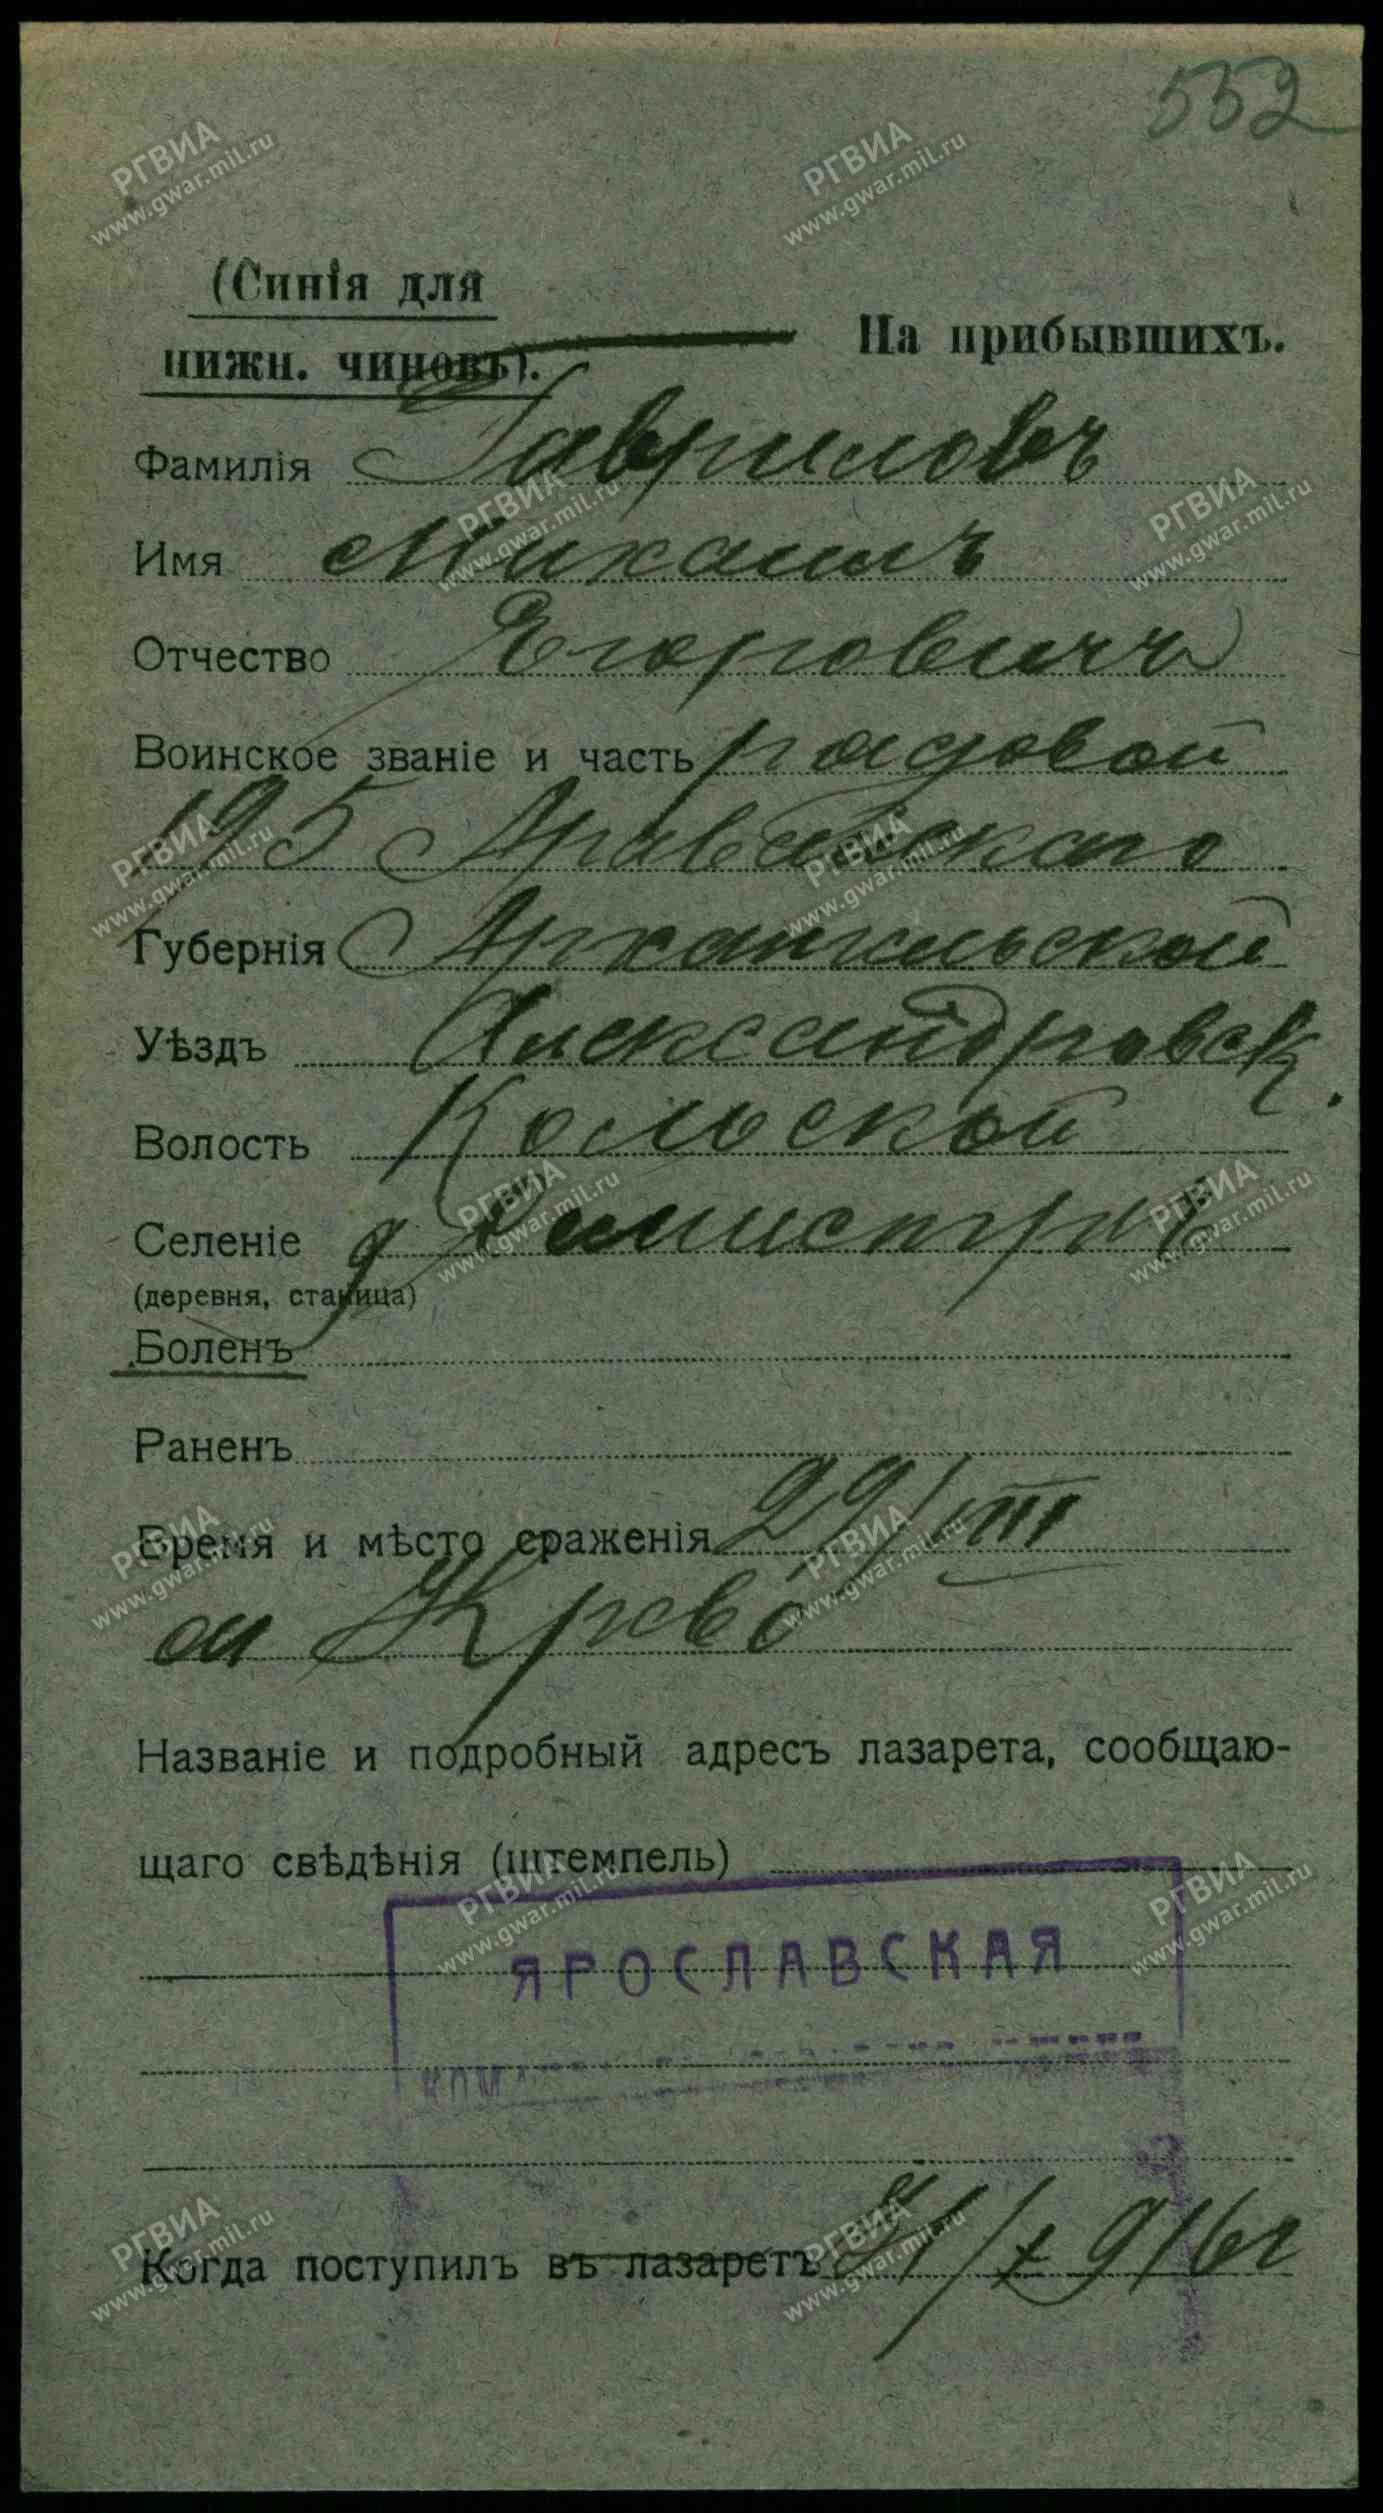 552
(Синія для
нижн. чиновъ).
На прибывшихъ.
Фамилія Гавриловъ
Имя Михаилъ
Отчество Егоровичъ
Воинское званіе и часть рядовой
195
Губернія Архангельской
Уѣздъ Александровск.
Волость Кольской
Селеніе д
(деревня, станица)
Боленъ
Раненъ
Время и мѣсто сраженія 29/VIII
м Крево
Названіе и подробный адресъ лазарета, сообщаю-
щаго свѣдѣнія (штемпель)
ЯРОСЛАВСКАЯ
Когда поступилъ въ лазаретъ 916г
РГВИА
www.gwar.mil.ru